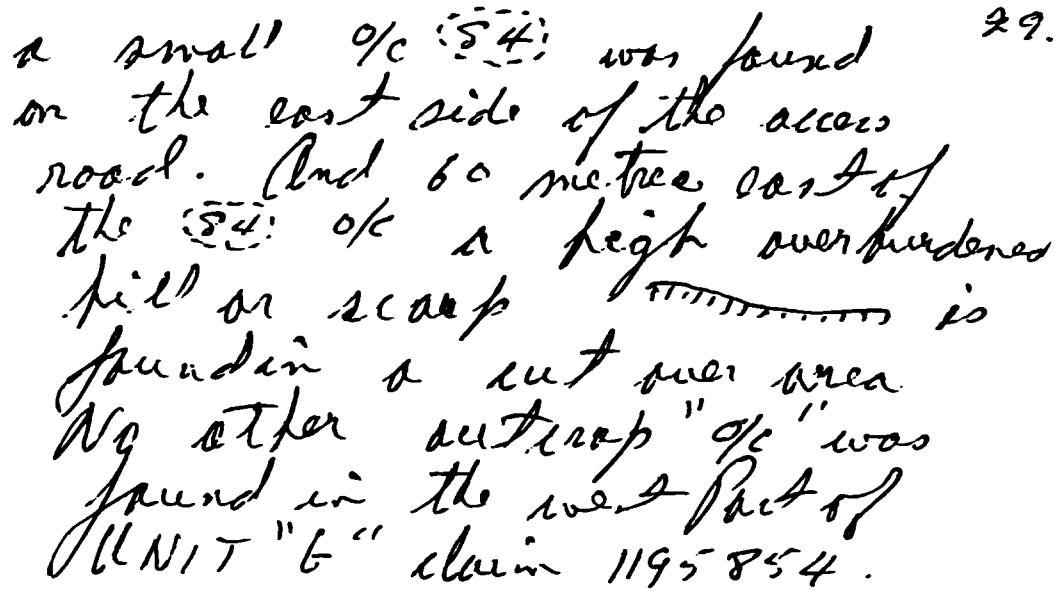 29.
a small o/c 84 was found
on the east side of the access
road. And 60 metres east of
the 84 o/c a high overburdened
hill or scarp is
found in a cut over area
No other outcrop "o/c" was
found in the west Part of
UNIT "E" claim 1195854.